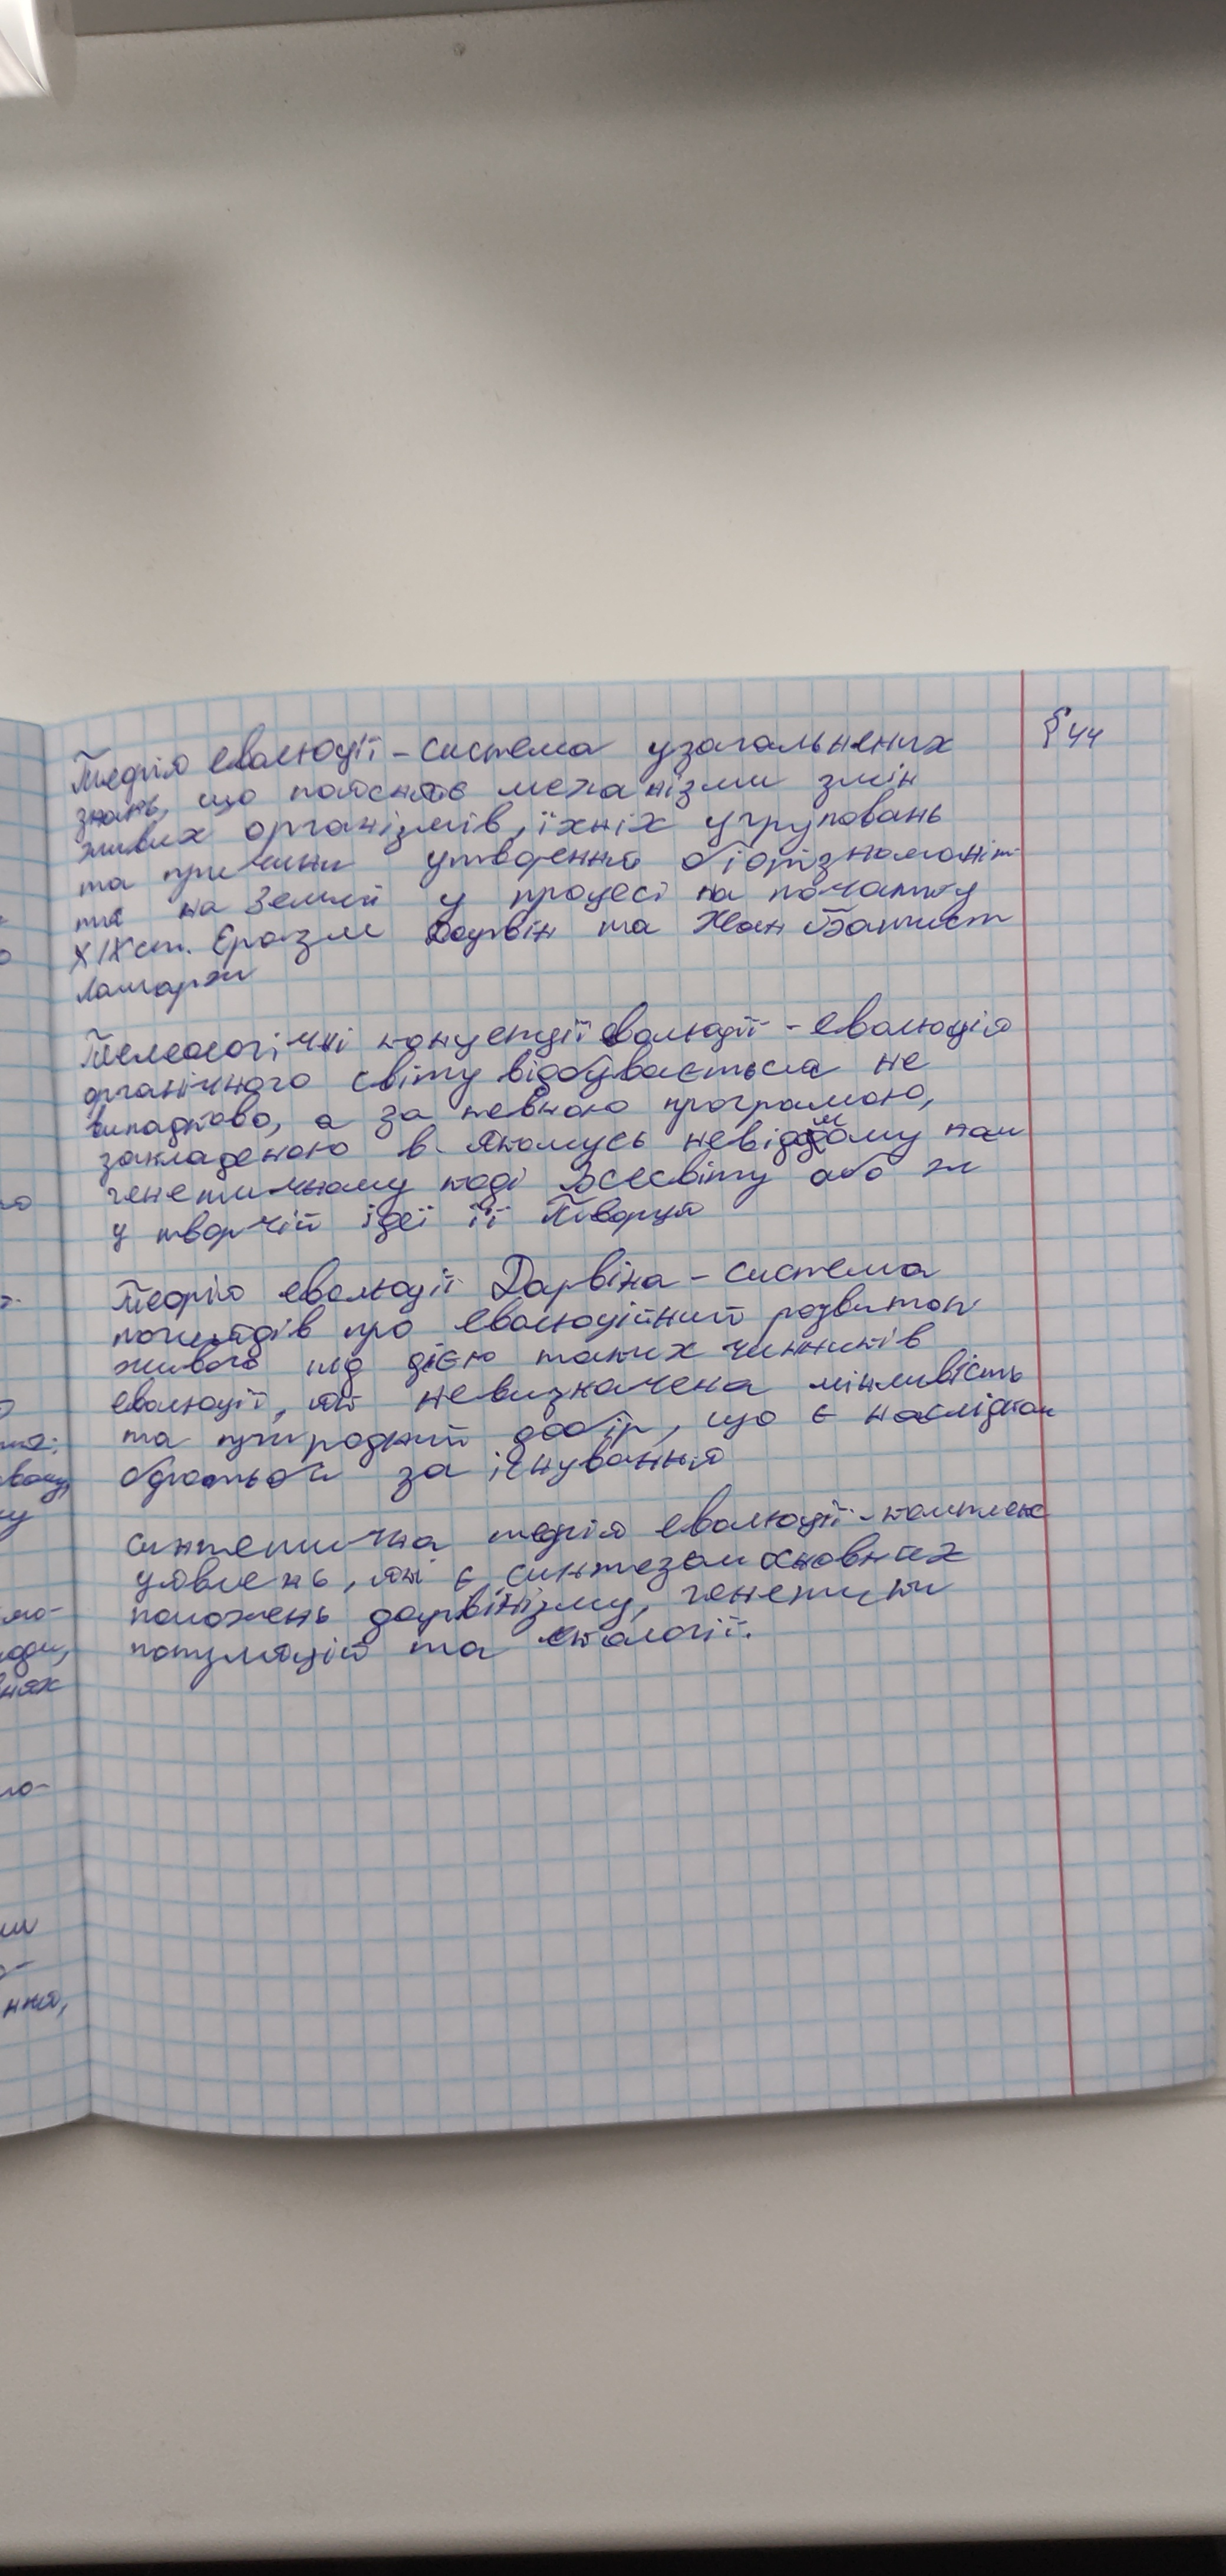 §44
Теорія еволюції - система узагальнених
знань, що пояснює механізми змін
живих організмів, їхніх угруповань
та причини утворення біорізноманіт-
тя на Землі у процесі на початку
XIXст. Еразм Дарвін та Жан Батист
Ламарк
Телеологічні концепції еволюції - еволюція
органічного світу відбувається не
випадково, а за певною програмою,
закладеною в якомусь невідомому нам
генетичному коді Всесвіту або ж
у творчій ідеї її Творця
Теорія еволюції Дарвіна - система
поглядів про еволюційний розвиток
живого під дією таких чинників
еволюції, як невизначена мінливість
та природний добір, що є наслідком
боротьби за існування
синтетична теорія еволюції - комплекс
уявлень, які є синтезом основних
положень дарвінізму, генетики
популяцій та екології.